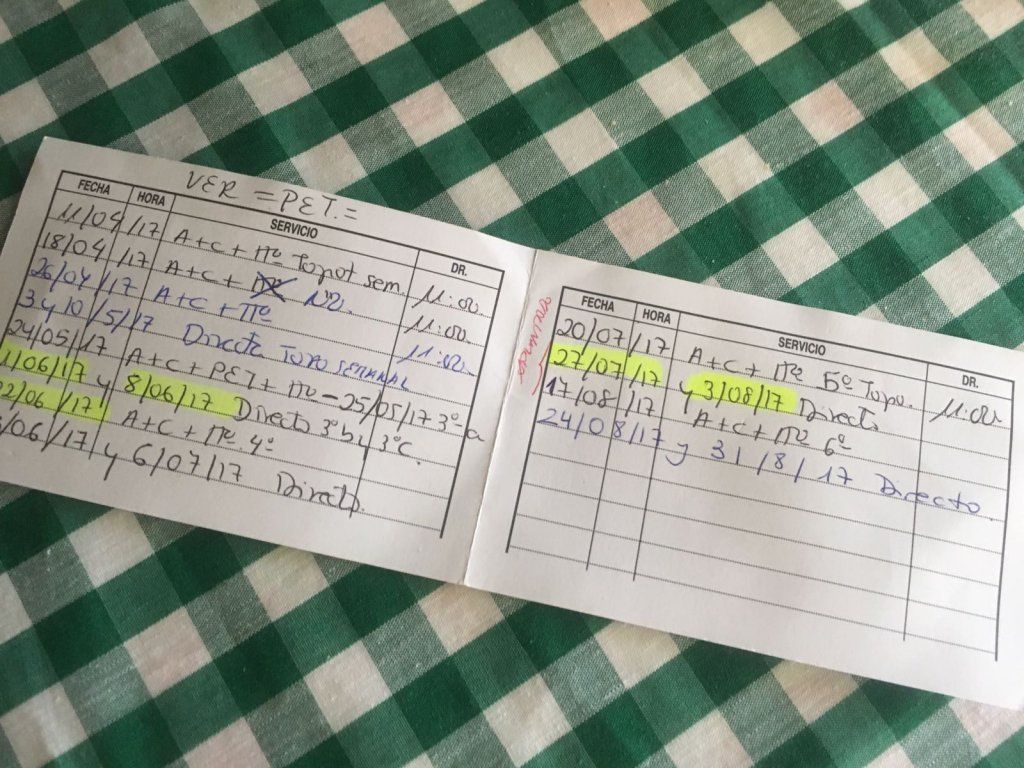 VER = PET. =
FECHA HORA SERVICIO DR.
11/04/17 A+C + Mº Topot sem. 11:00.
18/04/17 A+C + NR. 11:00.
26/04/17 A+C + Mº 11:00
3 y 10/5/17 Directo TOPO SEMANAL
24/05/17 A+C + PET + Mº - 25/05/17 3º a
1/06/17 y 8/06/17 Directo 3º b y 3º c.
22/06/17 A+C + Mº. 4º
/06/17 y 6/07/17 Directo.
FECHA HORA SERVICIO DR.
20/07/17 A+C + Mº 5º Topo. 11:00
27/07/17 y 3/08/17 Directo
17/08/17 A+C + Mº 6º
24/08/17 y 31/8/17 Directo